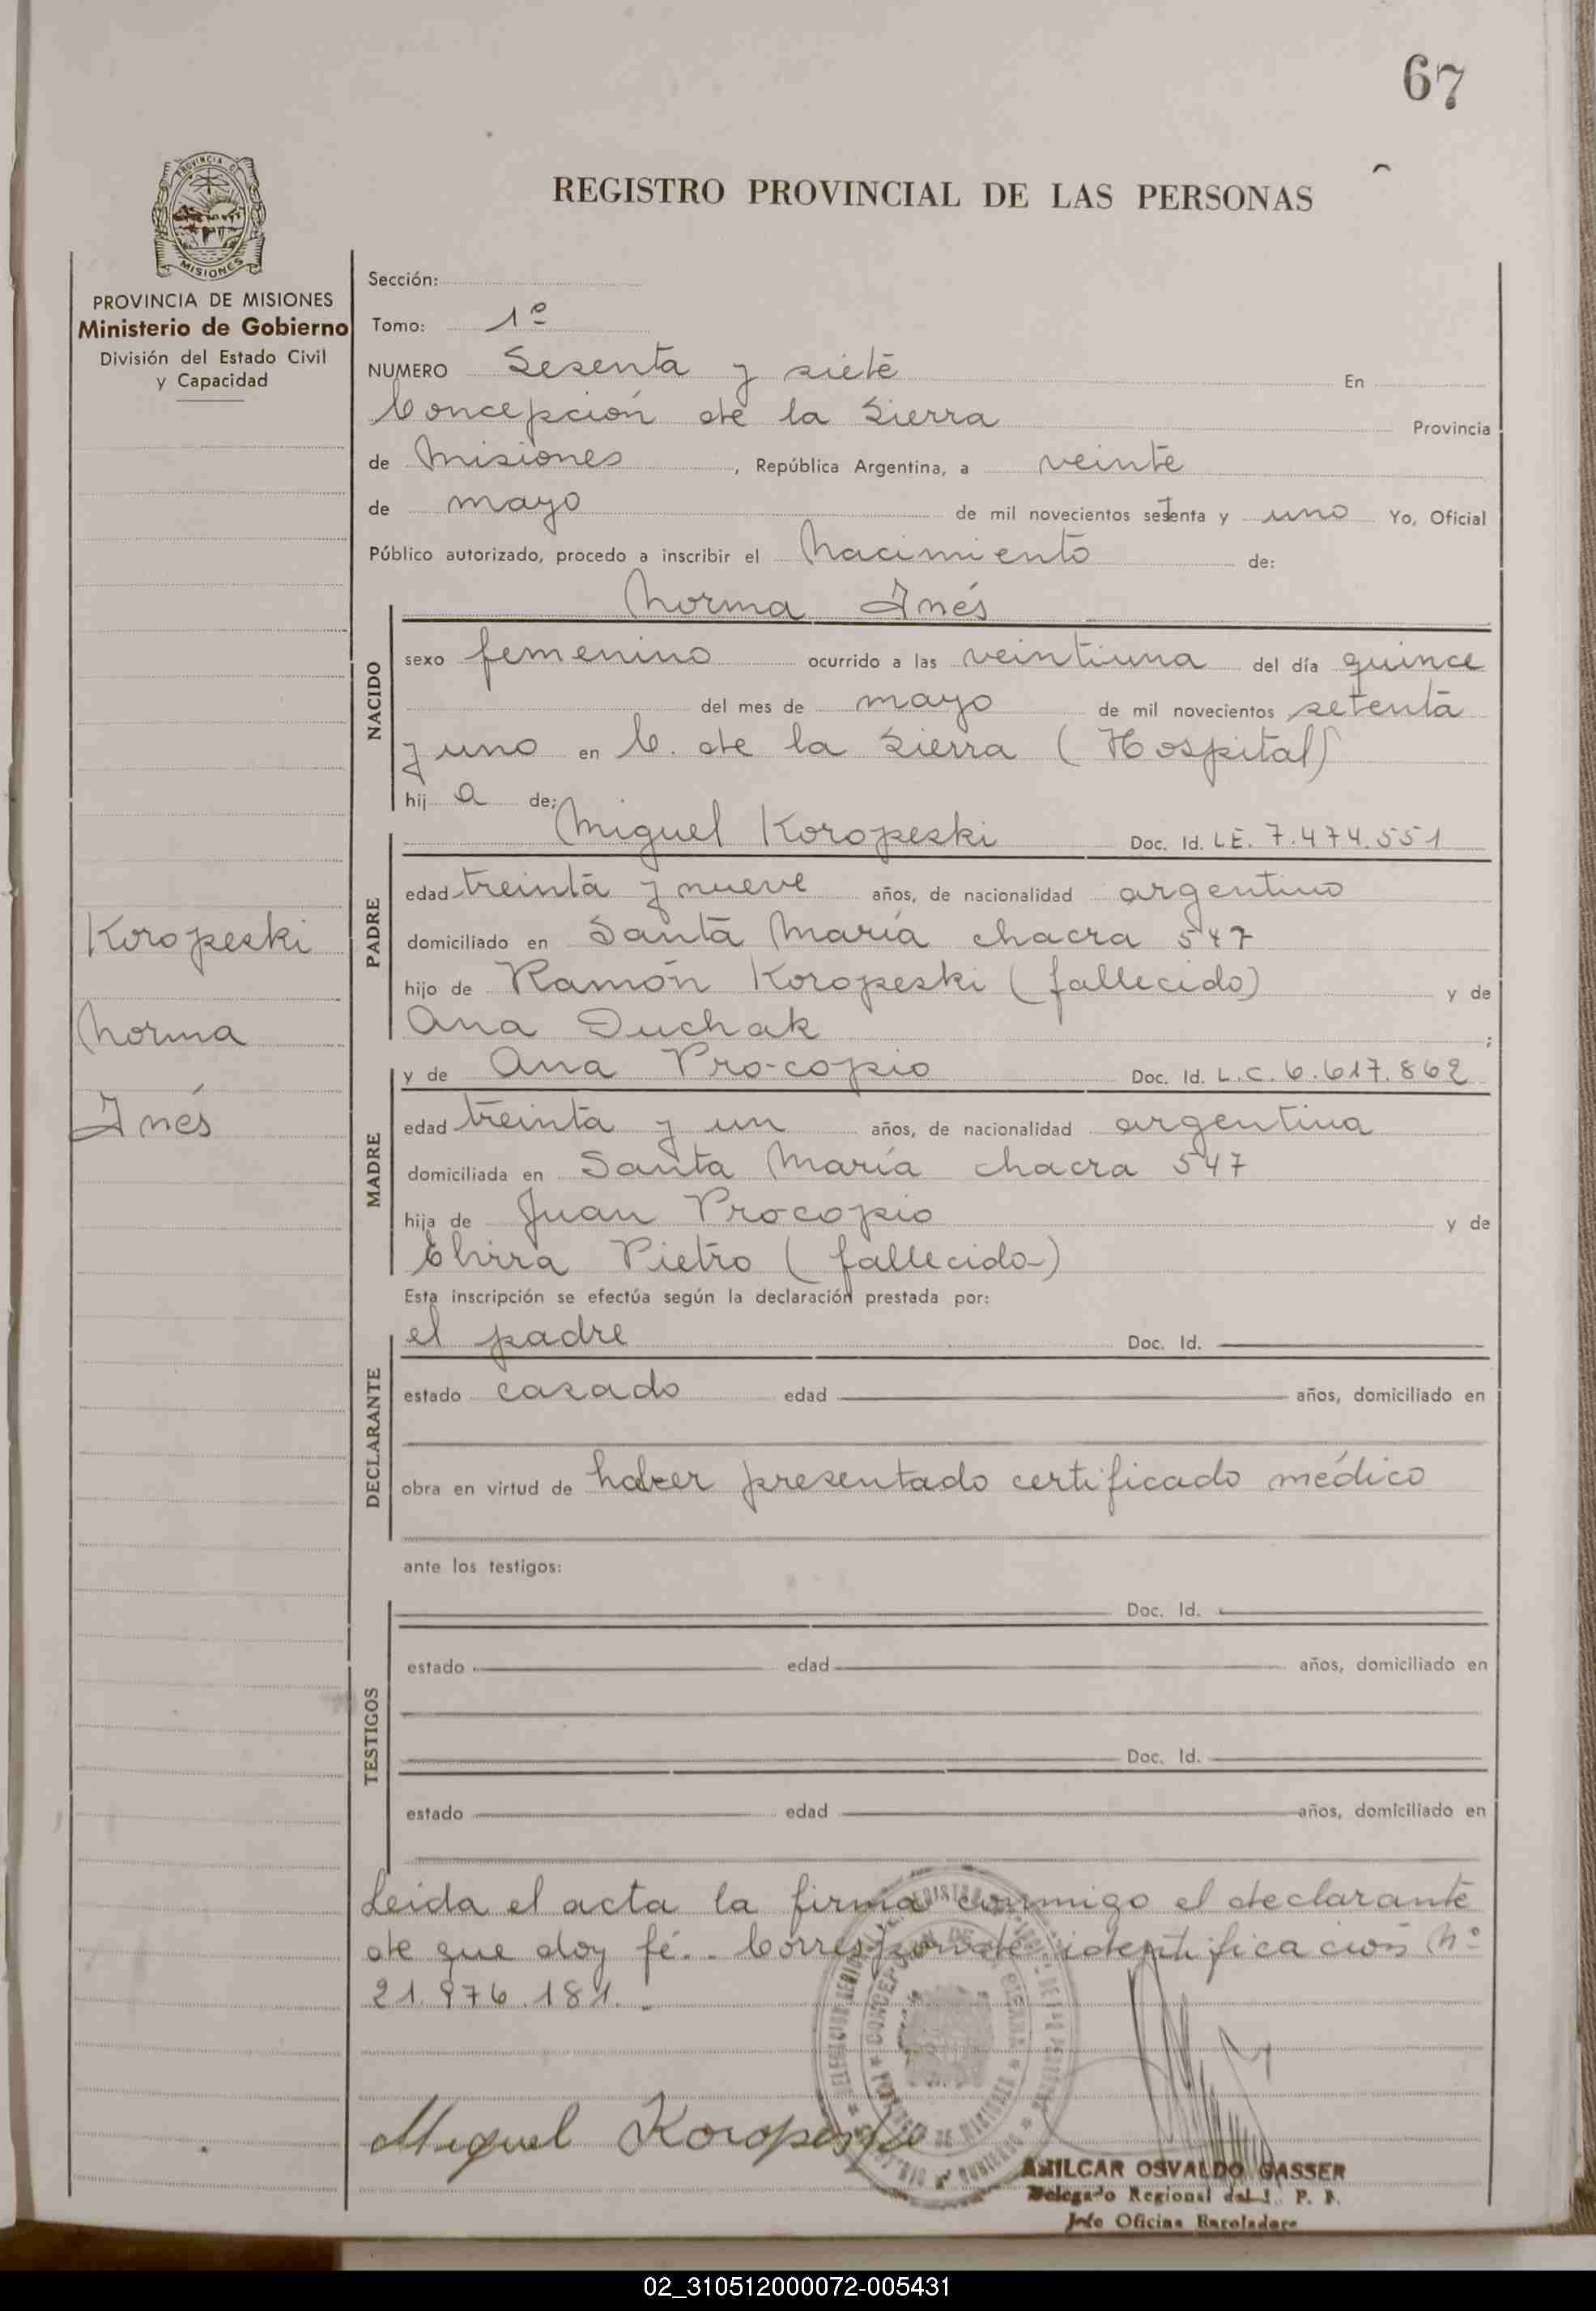 67
REGISTRO PROVINCIAL DE LAS PERSONAS
PROVINCIA DE MISIONES
Ministerio de Gobierno
División del Estado Civil
y Capacidad
Koropeski
Norma
Inés
Sección:
Tomo: 1º
NUMERO Sesenta y siete En
Concepción de la Sierra Provincia
de Misiones, República Argentina, a veinte
de mayo de mil novecientos setenta y uno Yo, Oficial
Público autorizado, procedo a inscribir el Nacimiento de:
Norma Inés
NACIDO
sexo femenino ocurrido a las veintiuna del día quince
del mes de mayo de mil novecientos setenta
y uno en C. de la Sierra (Hospital)
hija de:
Miguel Koropeski Doc. Id. LE. 7.474.551
PADRE
edad treinta y nueve años, de nacionalidad argentino
domiciliado en Santa María chacra 547
hijo de Ramón Koropeski (fallecido) y de
Ana Duchak ;
y de Ana Procopio Doc. Id. L.C. 6.617.862
MADRE
edad treinta y un años, de nacionalidad argentina
domiciliada en Santa María chacra 547
hija de Juan Procopio y de
Elvira Pietro (fallecida)
Esta inscripción se efectúa según la declaración prestada por:
el padre Doc. Id.
DECLARANTE
estado casado edad años, domiciliado en
obra en virtud de haber presentado certificado médico
ante los testigos:
TESTIGOS
Doc. Id.
estado edad años, domiciliado en
Doc. Id.
estado edad años, domiciliado en
Leida el acta la firma conmigo el declarante
de que doy fé.. Corresponde identificación Nº
21.976.181.-
Miguel Koropeski
AMILCAR OSVALDO GASSER
Delegado Regional del
Jefe Oficina
02_310512000072-005431